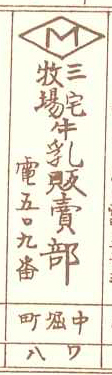 M
三宅牧場
牛乳販賣部
電五〇九番
中堀町
八ワ